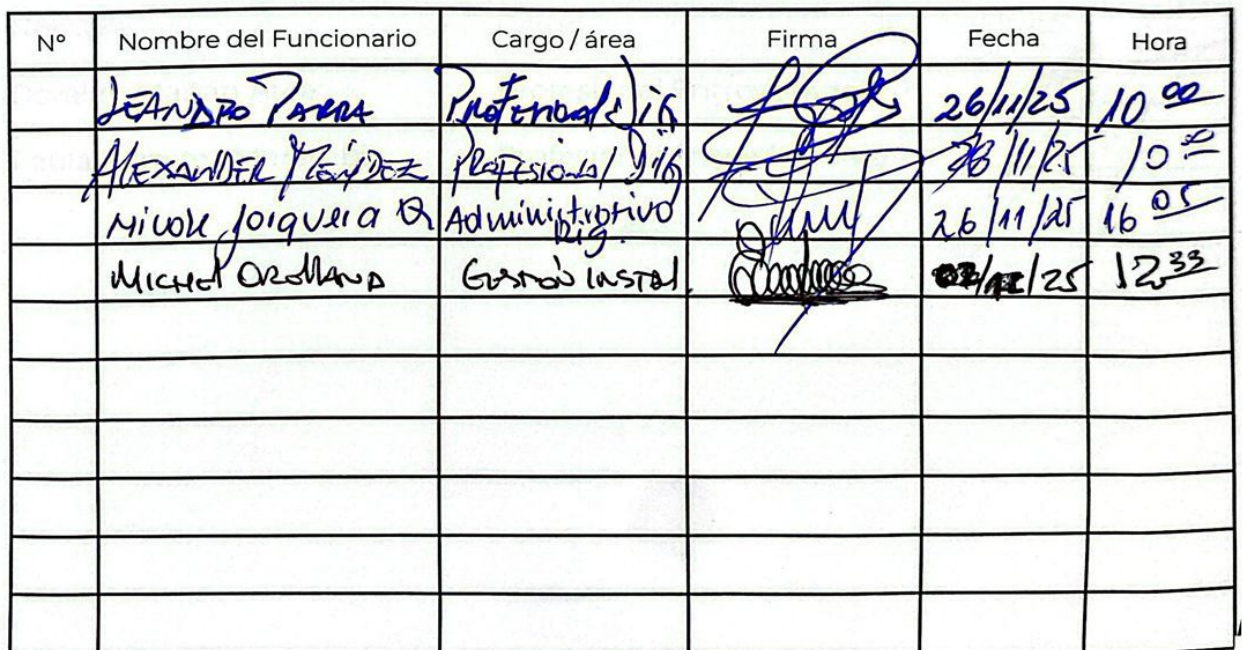 Nº Nombre del Funcionario Cargo / área Firma Fecha Hora
LEANDRO PARRA Profesional Dig 26/11/25 10 00
ALEXANDER MÉNDEZ PROFESIONAL DIG 26/11/25 10
Nicole Jorquera Administrativo Dig. 26/11/25 16 05
MICHEL ORELLANA GESTIÓN INSTAL /25 12 33